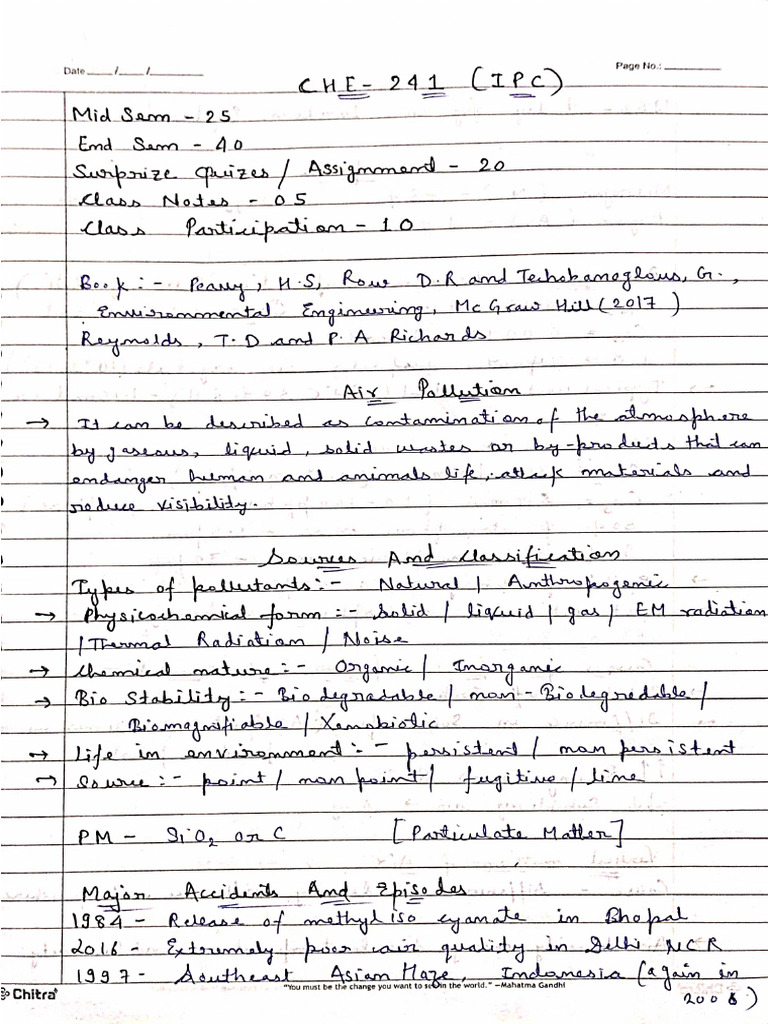 Date ___/___/______ Page No.: ______
CHE-241 (IPC)
Mid Sem - 25
End Sem - 40
Surprize Quizes / Assignment - 20
Class Notes - 05
Class Participation - 10
Book :- Peavy, H.S, Rowe D.R and Techobanoglous, G.,
Environmental Engineering, Mc Graw Hill (2017)
Reynolds, T.D and P. A Richards
Air Pollution
→ It can be described as contamination of the atmosphere
by gaseous, liquid, solid wastes or by-products that can
endanger human and animals life, attack materials and
reduce visibility.
Sources And Classification
Types of pollutants :- Natural / Anthropogenic
→ Physicochemical form :- Solid / liquid / gas / EM radiation
/ Thermal Radiation / Noise
→ Chemical nature :- Organic / Inorganic
→ Bio Stability :- Biodegradable / non-Biodegredable /
Biomagnifiable / Xenobiotic
→ Life in environment :- persistent / non persistent
→ Source :- point / non point / fugitive / line
PM - SiO₂ or C [Particulate Matter]
Major Accidents And Episodes
1984 - Release of methyl iso cyanate in Bhopal
2016 - Extremely poor air quality in Delhi NCR
1997 - Southeast Asian Haze, Indonesia (again in
2006)
Chitra "You must be the change you want to see in the world." –Mahatma Gandhi